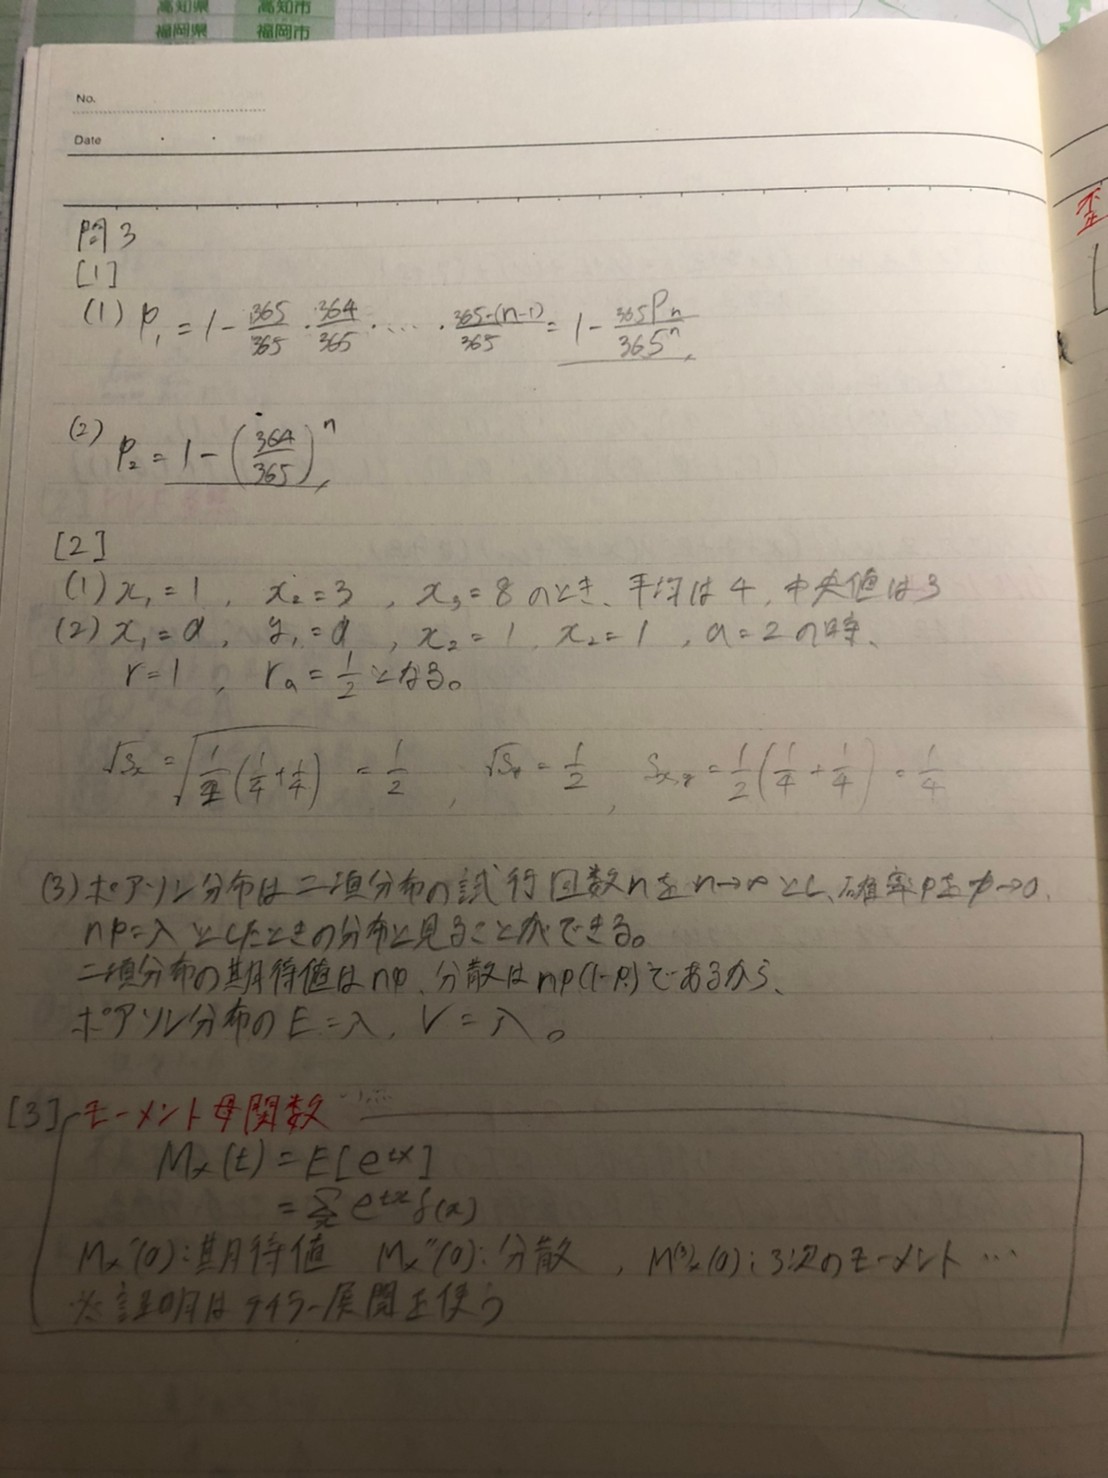 高知県 高知市
福岡県 福岡市
No.
Date
問3
[1]
(1) P₁ = 1 - 365/365 · 364/365 · … · 365-(n-1)/365 = 1 - 365Pn/365ⁿ
(2) P₂ = 1 - (364/365)ⁿ
[2]
(1) x₁ = 1, x₂ = 3, x₃ = 8 のとき、平均は 4, 中央値は 3
(2) x₁ = 0, y₁ = 0, x₂ = 1, x₂ = 1, a = 2 の時、
r = 1, ra = 1/2 となる。
√Sx = √(1/2(1/4+1/4)) = 1/2, √Sy = 1/2, Sx,y = 1/2(1/4+1/4) = 1/4
(3) ポアソン分布は二項分布の試行回数nをn→∞とし、確率pをp→0、
np=λとしたときの分布と見ることができる。
二項分布の期待値はnp、分散はnp(1-p)であるから、
ポアソン分布のE=λ, V=λ。
[3] モーメント母関数
Mx(t) = E[eᵗˣ]
= Σx eᵗˣf(x)
Mx'(0):期待値 Mx''(0):分散, M⁽³⁾x(0):3次のモーメント…
※証明はテイラー展開を使う
歪